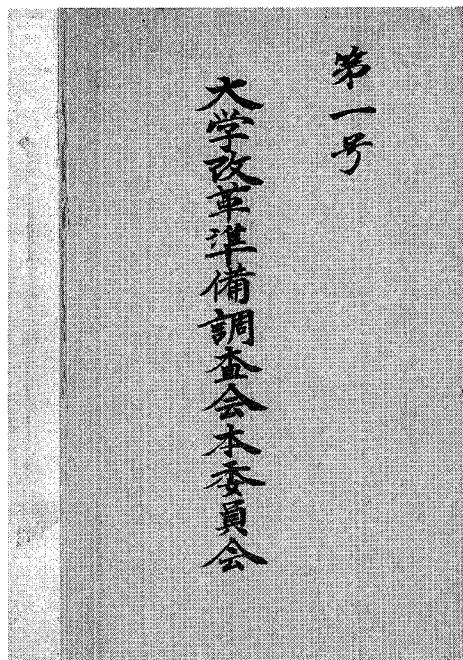 第一号
大学改革準備調査会本委員会